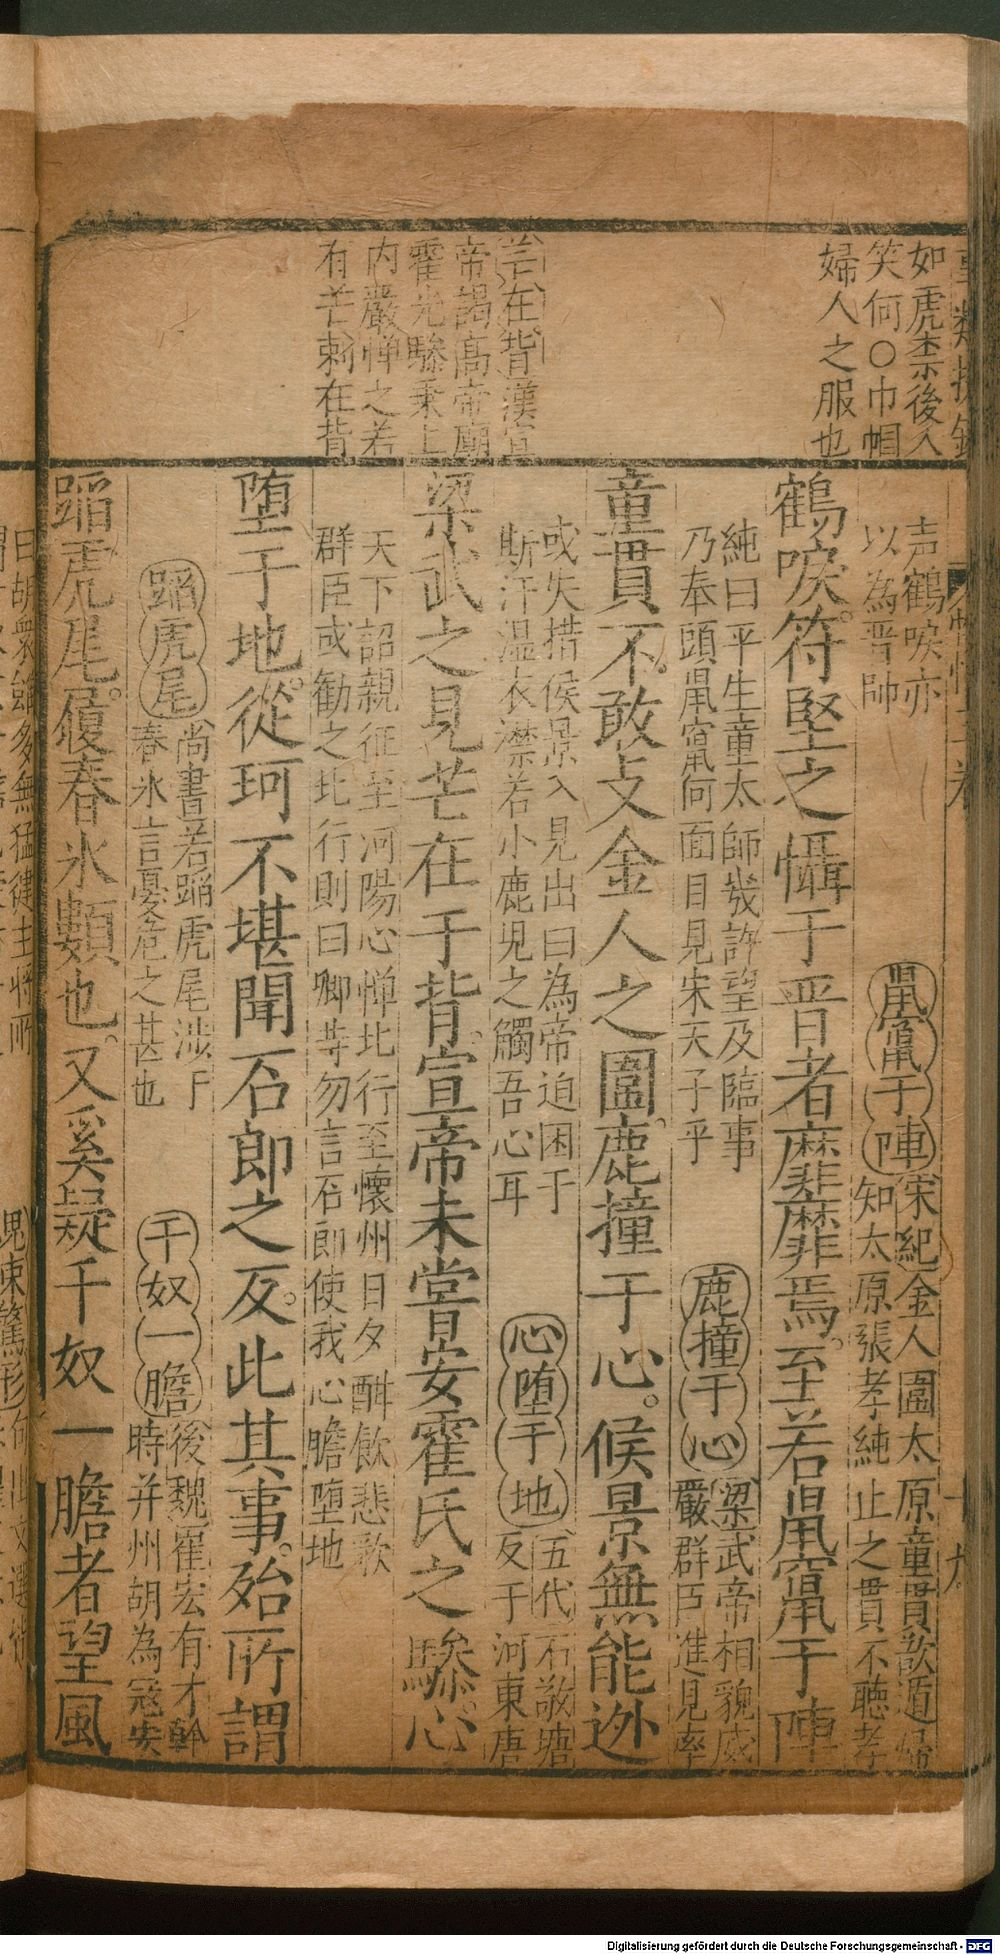 如虎柰後入
笑何〇巾幗
婦人之服也
芒在背漢宣
帝謁高帝廟
霍光驂乗上
内嚴憚之若
有芒刺在背
声鶴唳亦
以為晋帥
鼠竄于陣宋紀金人圍太原童貫欲遁歸
知太原張孝純止之貫不聴孝
鶴唳。符堅之懾于晋者靡靡焉。至若鼠竄于陣
純曰平生童太師㦲許望及臨事
乃奉頭鼠竄何面目見宋天子乎
鹿撞于心梁武帝相貌威
嚴群臣進見率
童貫不。敢攴金人之圍。鹿撞于心。候景無能迯
或失措候景入見出曰為帝迫困于
斯汗湿衣襟若小鹿児之觸吾心耳
心堕于地五代石敬瑭
反于河東唐
梁武之見芒在于背。宣帝未嘗安霍氏之驂。心
天下詔親征至河陽心憚北行至懷州日夕酣飲悲歌
群臣或勧之北行則曰卿䓁勿言石郎使我心膽堕地
堕于地。從珂不堪聞石郎之反。此其事。殆所謂
蹈虎尾尚書若蹈虎尾涉于
春氷言憂危之甚也
千奴一膽後魏崔宏有才幹
時并州胡為冦安
蹈虎尾。履春氷𩔖也。又奚疑千奴一膽者望風
Digitalisierung gefördert durch die Deutsche Forschungsgemeinschaft - DFG